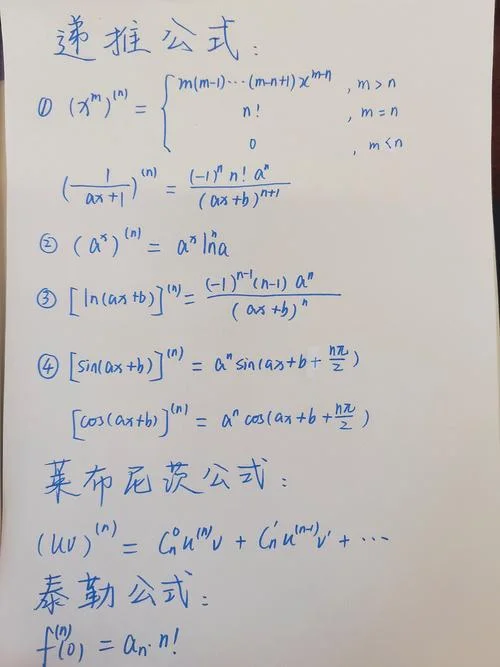 递推公式:
① (x^m)^(n) = { m(m-1)···(m-n+1)x^(m-n) , m>n
n! , m=n
0 , m<n
(1/(ax+1))^(n) = (-1)^n n! a^n/(ax+b)^(n+1)
② (a^x)^(n) = a^x ln^n a
③ [ln(ax+b)]^(n) = (-1)^(n-1)(n-1) a^n/(ax+b)^n
④ [sin(ax+b)]^(n) = a^n sin(ax+b+nπ/2)
[cos(ax+b)]^(n) = a^n cos(ax+b+nπ/2)
莱布尼茨公式:
(uv)^(n) = C_n^0 u^(n)v + C_n^1 u^(n-1)v' + ···
泰勒公式:
f^(n)(0) = a_n·n!